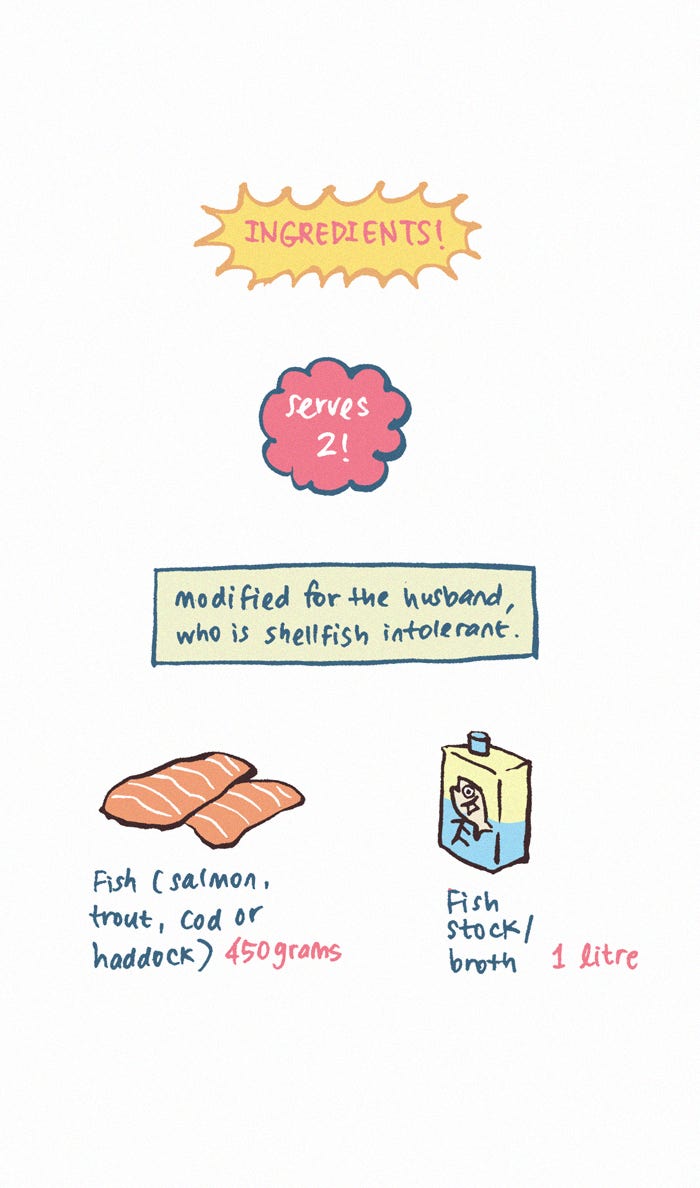 INGREDIENTS!
serves
2!
modified for the husband,
who is shellfish intolerant.
Fish (salmon,
trout, cod or
haddock) 450grams
Fish
stock/
broth 1 litre